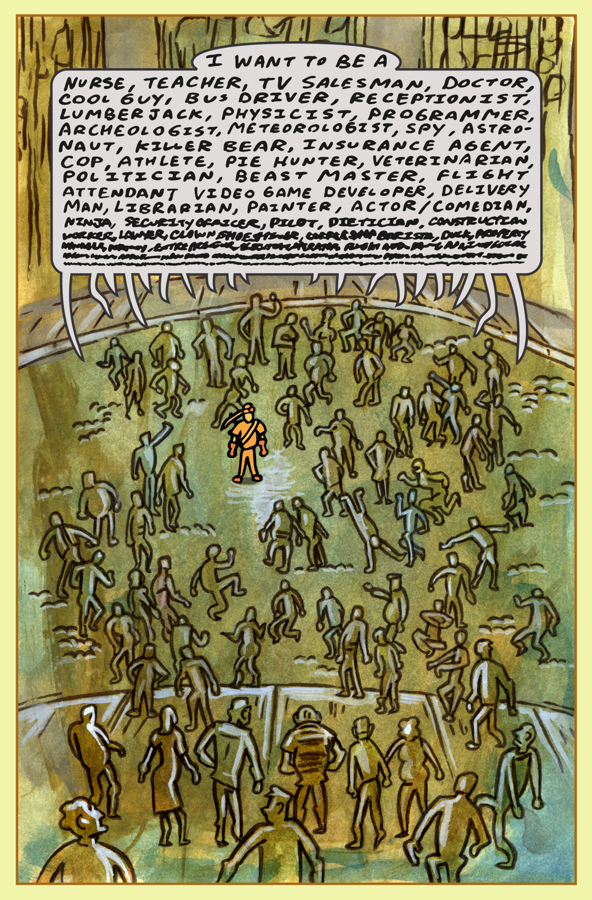 I WANT TO BE A
NURSE, TEACHER, TV SALESMAN, DOCTOR,
COOL GUY, BUS DRIVER, RECEPTIONIST,
LUMBERJACK, PHYSICIST, PROGRAMMER,
ARCHEOLOGIST, METEOROLOGIST, SPY, ASTRO-
NAUT, KILLER BEAR, INSURANCE AGENT,
COP, ATHLETE, PIE HUNTER, VETERINARIAN,
POLITICIAN, BEAST MASTER, FLIGHT
ATTENDANT VIDEO GAME DEVELOPER, DELIVERY
MAN, LIBRARIAN, PAINTER, ACTOR/COMEDIAN,
NINJA, SECURITY OFFICER, PILOT, DIETICIAN, CONSTRUCTION
WORKER, LAWYER, CLOWN, BARISTA, DUCK, PROPERTY